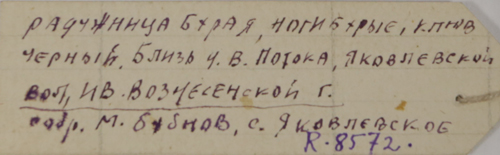 РАДУЖНИЦА БУРАЯ, НОГИ БУРЫЕ, КЛЮВ
ЧЕРНЫЙ, БЛИЗЬ У. В. ПОТОКА, ЯКОВЛЕВСКОЙ
ВОЛ, ИВ. ВОЗНЕСЕНСКОЙ Г.
СОБР. М. БУБНОВ, С. ЯКОВЛЕВСКОЕ
R. 8572.